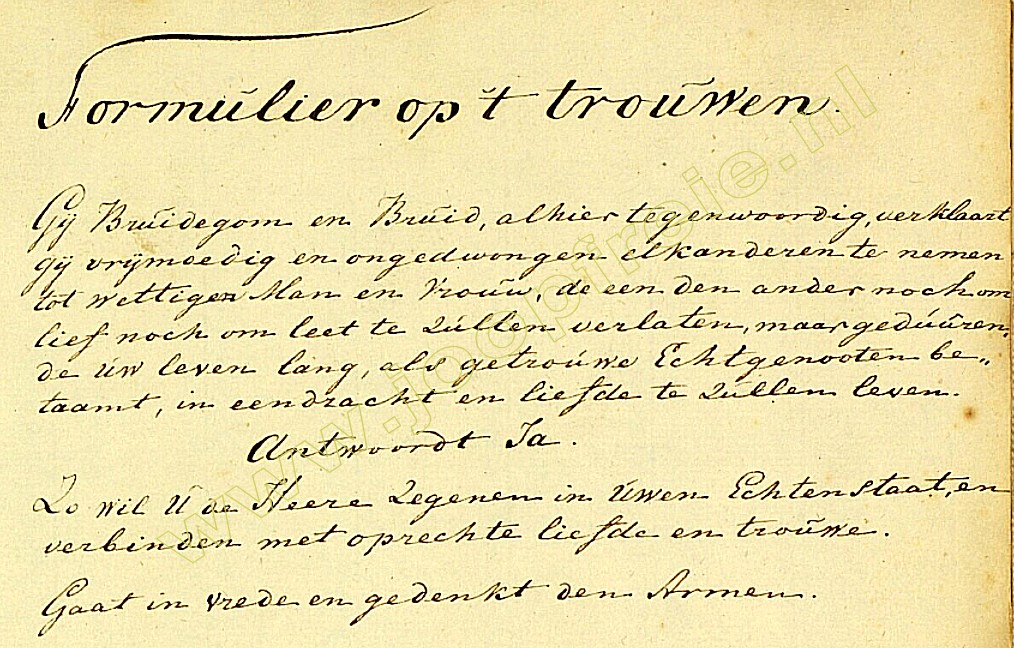 Formulier op 't trouwen.
Gij Bruidegom en Bruid, alhier tegenwoordig, verklaart
gij vrijmoedig en ongedwongen elkanderen te nemen
tot wettigen Man en Vrouw, de een den ander noch om
lief noch om leet te zullen verlaten, maar geduuren,
de uw leven lang, als getrouwe Echtgenooten be„
taamt, in eendracht en liefde te zullen leven.
Antwoordt Ja.
Zo wil U de Heere zegenen in uwen Echtenstaat, en
verbinden met oprechte liefde en trouwe.
Gaat in vrede en gedenkt den Armen.
www.joopfreie.nl